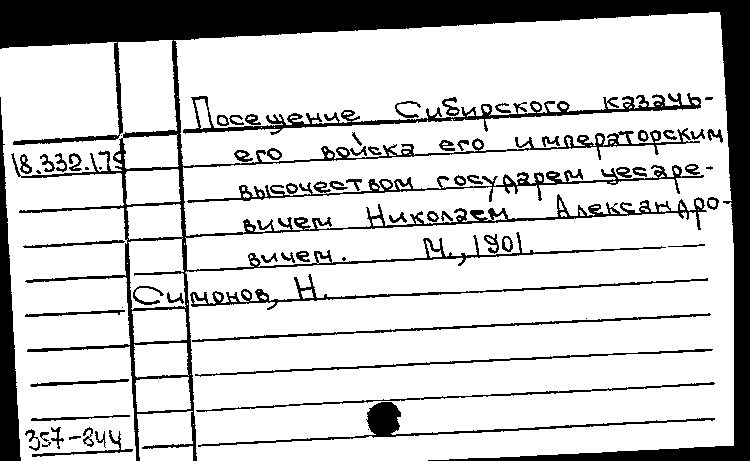 Посещение Сибирского казачь-
18.332.179 его войска его императорским
высочеством государем цесаре-
вичем Николаем Александро-
вичем. М., 1901.
Симонов, Н.
357-844